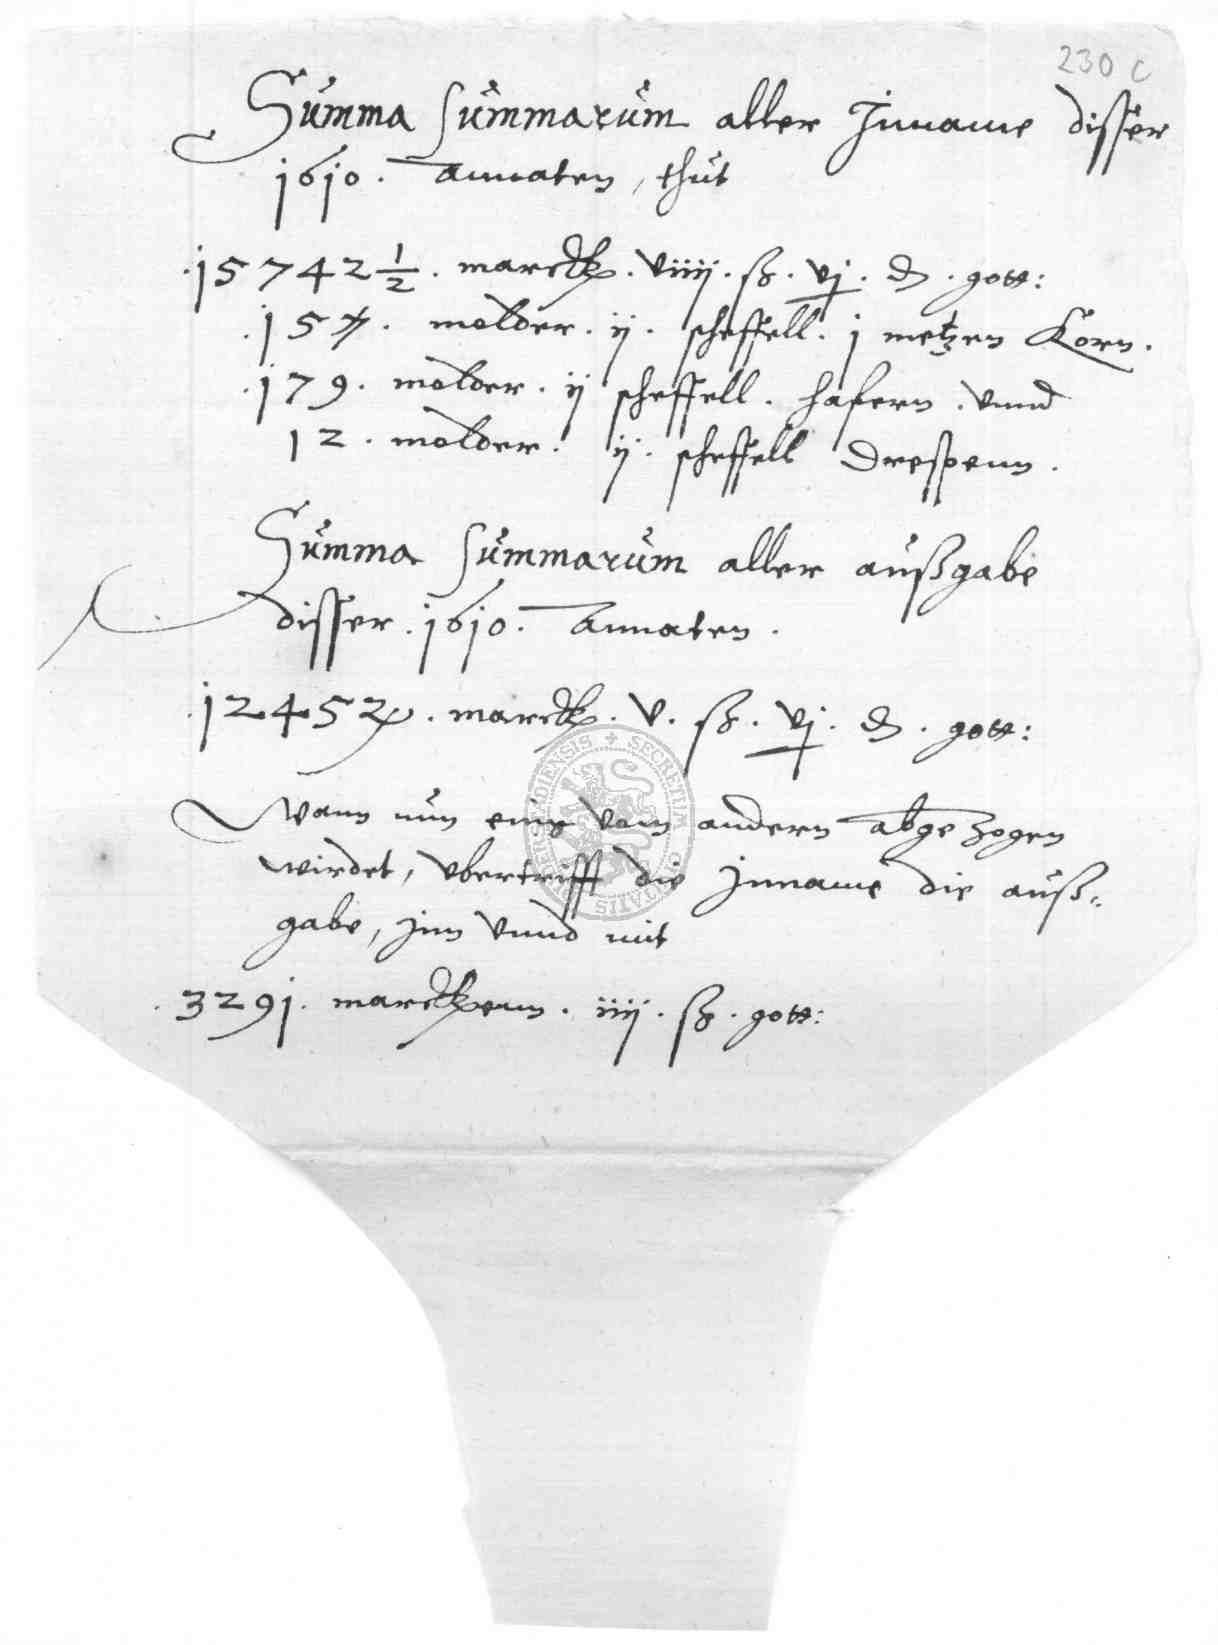 230 c
Summa summarum aller Inname disser
1610. Annaten, thut
15742 1/2. marckh. viiij. ß. vj. d. gott:
.157. molder. ij. scheffell. j metzen Korn.
.179. molder. ij scheffell. hafern. vnnd
12. molder. ij. scheffell Drespenn.
Summa summarum aller außgabe
disser. 1610. Annaten.
.12452. marckh. v. ß. vj. d. gott:
Wann nun eins vom andern abgezogen
wirdet, vbertrifft die Inname die auß-
gabe, jnn vnnd mit
.3291. marckhenn. iiij. ß. gott:
SECRETUM UNIVERSITATIS